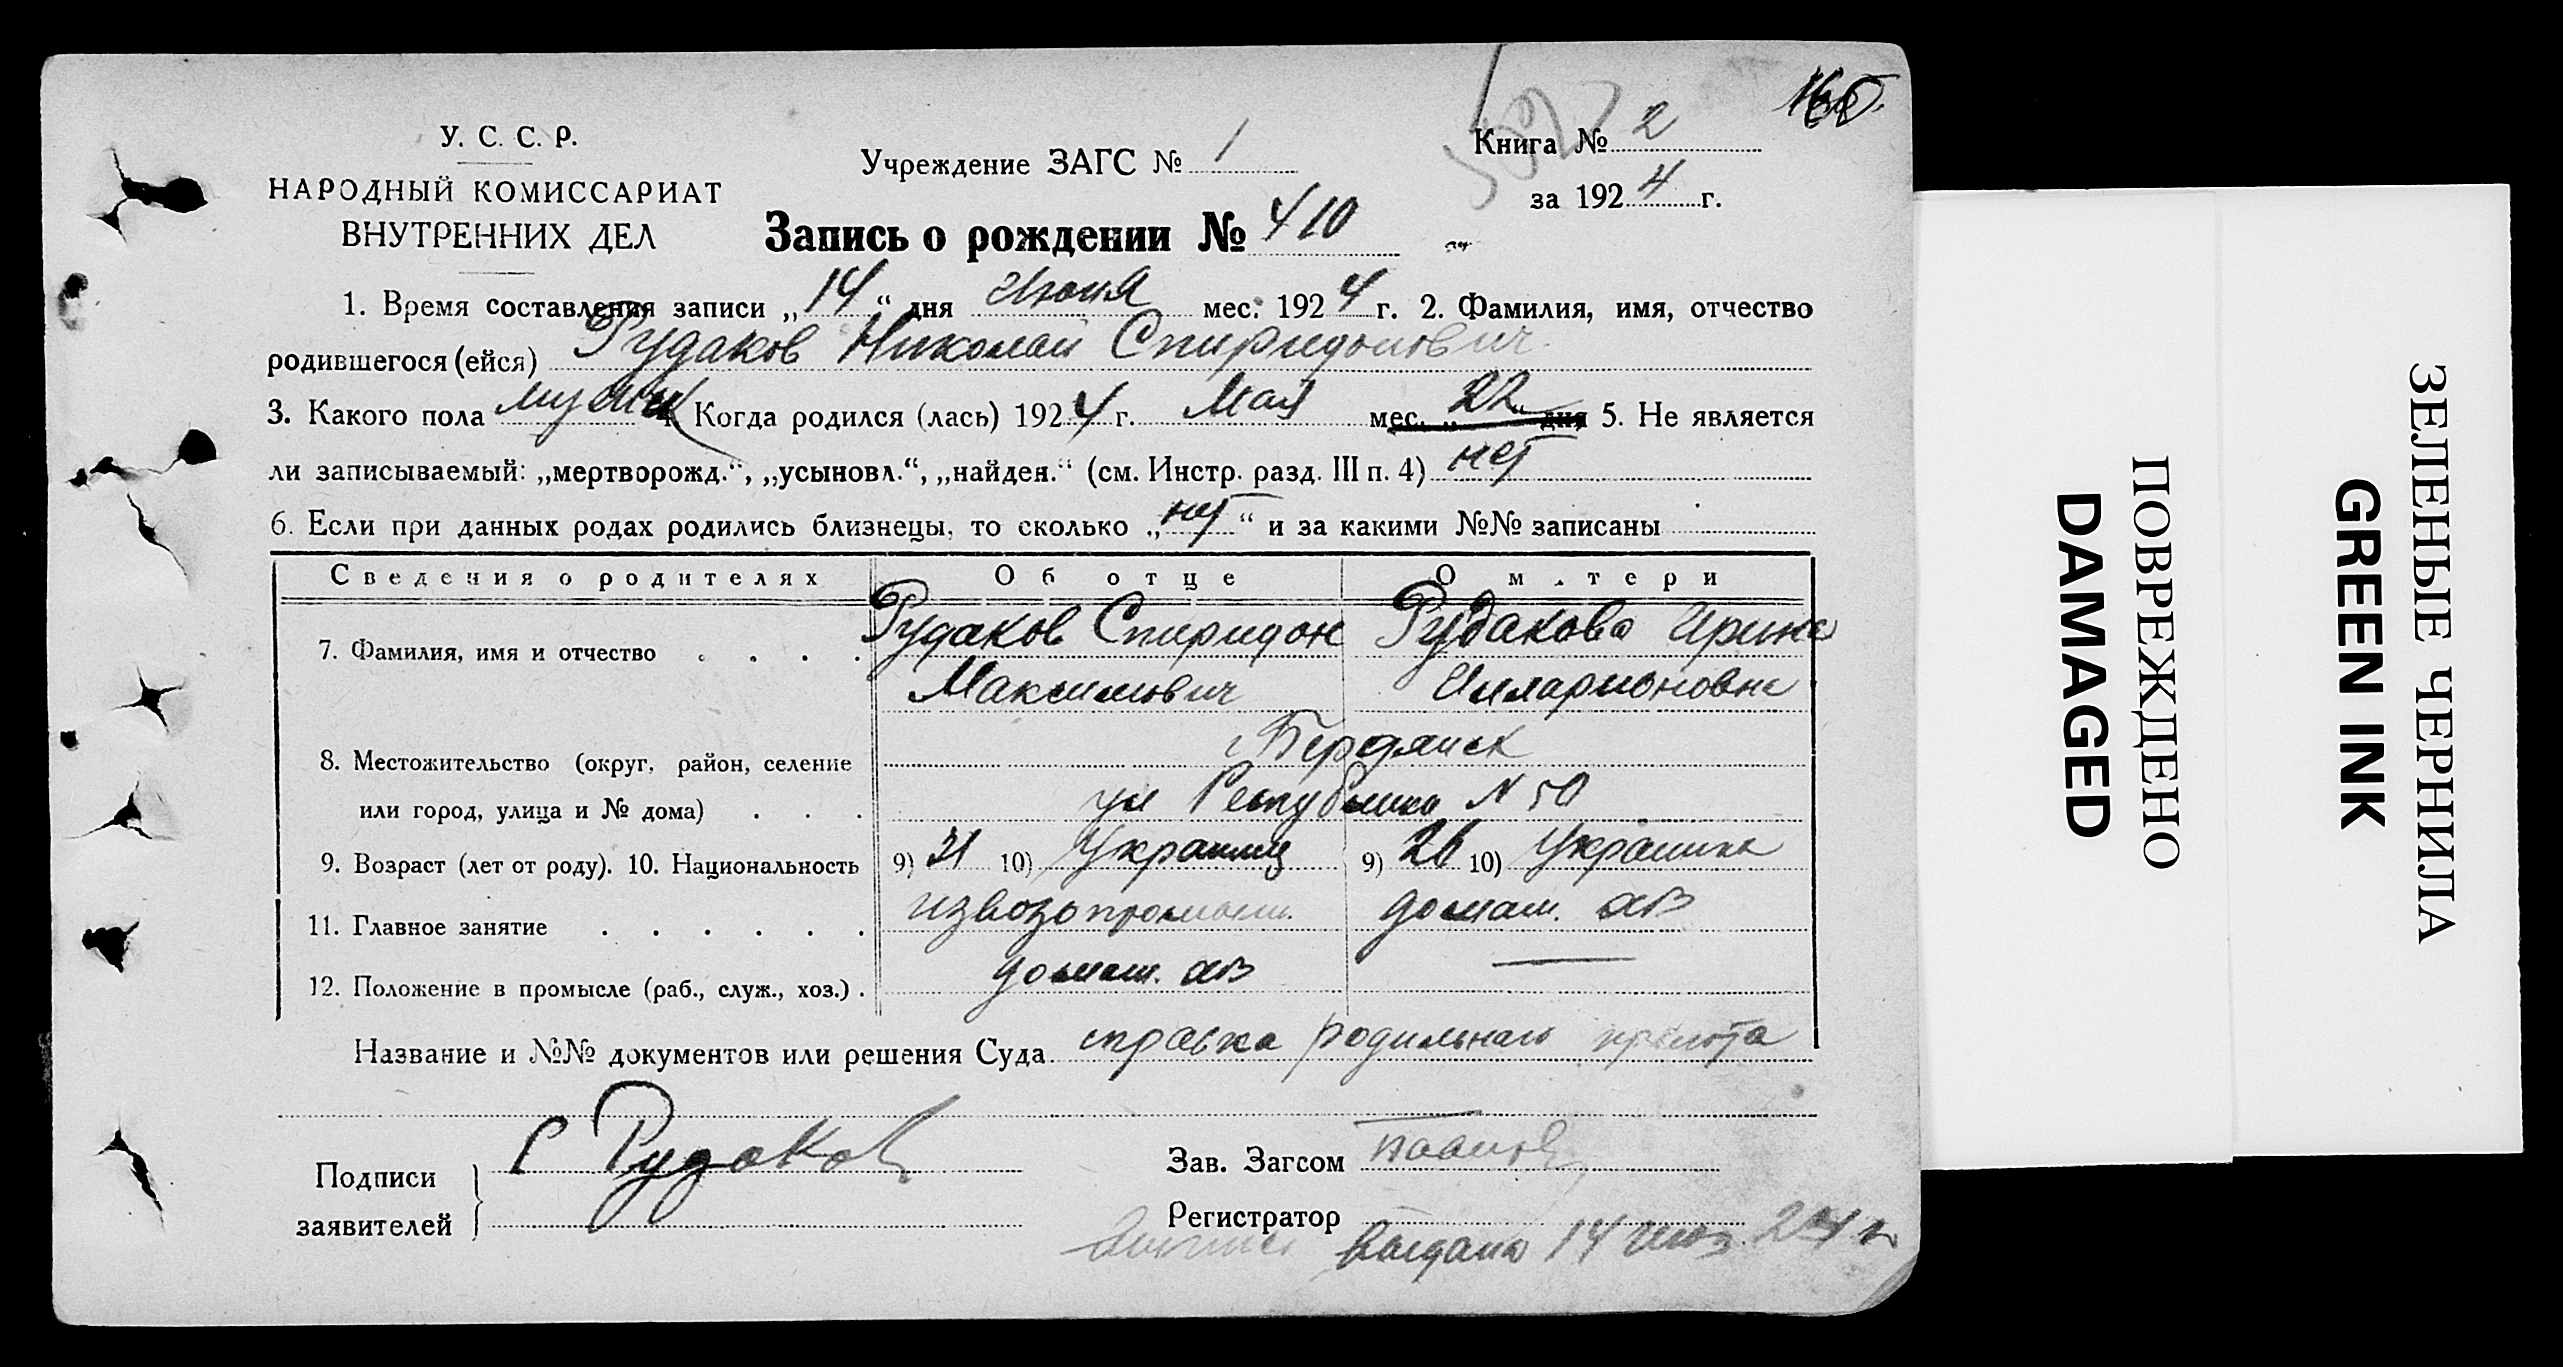 У. С. С. Р.
НАРОДНЫЙ КОМИССАРИАТ
ВНУТРЕННИХ ДЕЛ
Учреждение ЗАГС № 1
Книга № 2
за 1924 г.
Запись о рождении № 410
1. Время составления записи „14“ дня Июня мес. 1924 г. 2. Фамилия, имя, отчество
родившегося (ейся) Рудаков Николай Спиридонович
3. Какого пола мужск 4. Когда родился (лась) 1924 г. Мая мес. „22“ дня 5. Не является
ли записываемый: „мертворожд.“, „усыновл.“, „найден.“ (см. Инстр. разд. III п. 4) нет
6. Если при данных родах родились близнецы, то сколько „нет“ и за какими №№ записаны
Сведения о родителях Об отце О матери
7. Фамилия, имя и отчество . . . . Рудаков Спиридон Рудакова Ирина
Максимович Илларионовна
8. Местожительство (округ, район, селение г Бердянск
или город, улица и № дома) . . . ул Республики N 50
9. Возраст (лет от роду). 10. Национальность 9) 31 10) Украинец 9) 26 10) Украинка
11. Главное занятие . . . . . . извозопромышл. домаш. хоз
12. Положение в промысле (раб., служ., хоз.) . домаш. хоз —
Название и №№ документов или решения Суда справка родильнаго приюта
Подписи
заявителей
С Рудаков
Зав. Загсом
Регистратор
Выписка выдана 14 июн 24 г
ПОВРЕЖДЕНО
DAMAGED
ЗЕЛЕНЫЕ ЧЕРНИЛА
GREEN INK